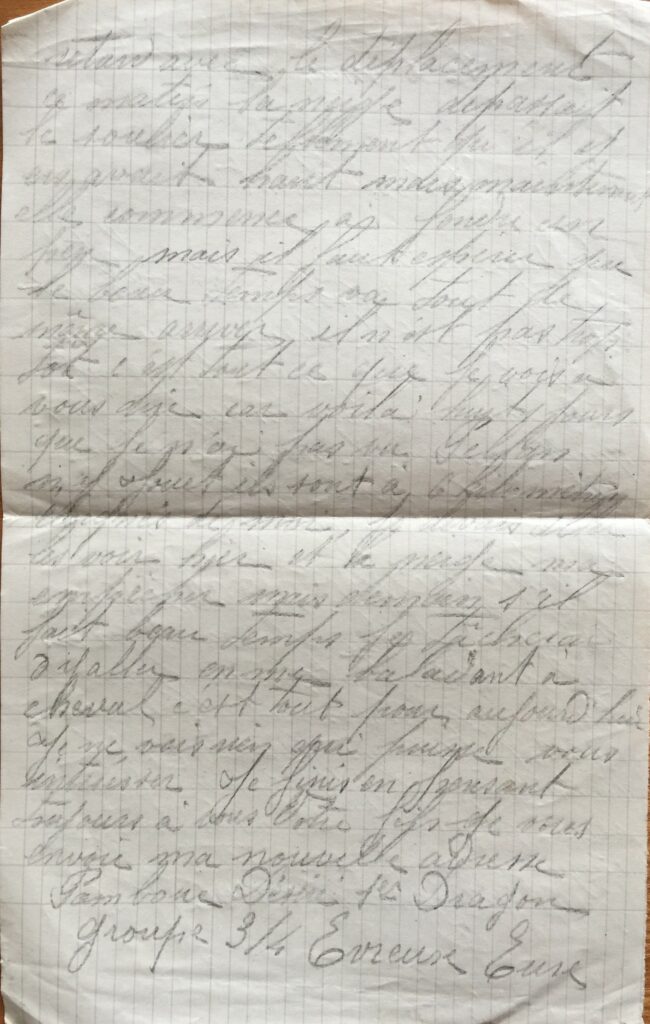 retard avec le déplacement
ce matin la neige dépassait
le soulier tellement qu'il
y en avait haut mais maintenant
elle commence a fondre un
peu mais il faut esperer que
le beau temps va tout de
même arriver il n'est pas trop
tot c'est tout ce que je vois a
vous dire car voilà huit jours
que je n'ai pas vu
ils sont à 6 kilomètres
les voir hier et la neige ma
empecher mais demain s'il
fait beau temps je tacherai
d'y aller en me baladant à
cheval c'est tout pour aujourd'hui
Je ne vois rien qui puisse vous
intéresser Je finis en pensant
toujours à vous Votre fils Je vous
envoie ma nouvelle adresse
1er Dragon
groupe 3/4 Evreux Eure